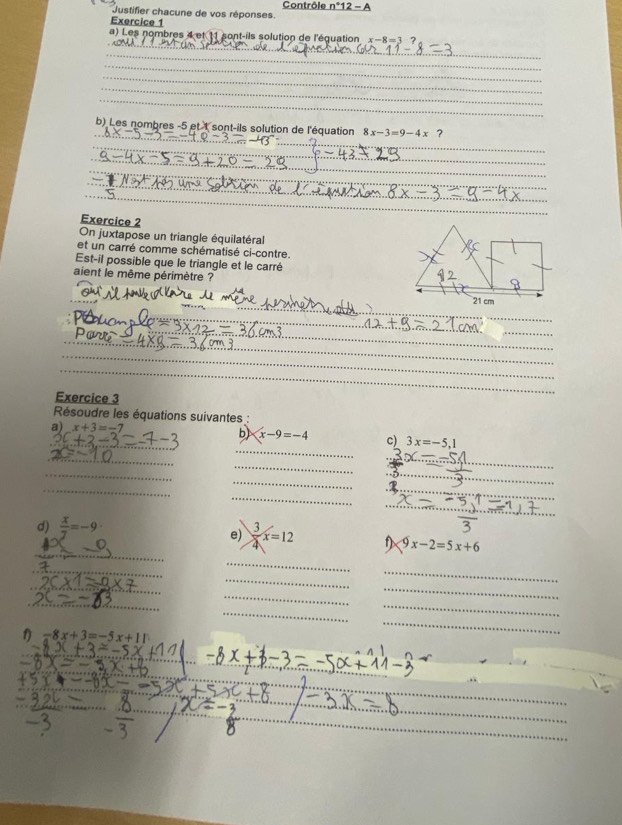 Contrôle n°12 – A
Justifier chacune de vos réponses.
Exercice 1
a) Les nombres 4 et 11 sont-ils solution de l'équation x – 8 = 3 ?
oui 11 est un solution de l'équation car 11 - 8 = 3
b) Les nombres -5 et 1 sont-ils solution de l'équation 8x – 3 = 9 – 4x ?
8x -5 -3 = -40 -3 = -43
9 - 4x -5 = 9 + 20 = 29 } -43 ≠ 29
-5 N'est pas une solution de l'équation 8x - 3 = 9 - 4x
Exercice 2
On juxtapose un triangle équilatéral
et un carré comme schématisé ci-contre.
Est-il possible que le triangle et le carré
aient le même périmètre ?
12
9
21 cm
oui il le même
12 + 9 = 21 cm
= 3x12 = 36 cm3
= 4x9 = 36 cm3
Exercice 3
Résoudre les équations suivantes :
a) x + 3 = –7
x + 3 - 3 = -7 - 3
x = -10
b) x – 9 = –4
c) 3x = –5,1
3x/3 = -5,1/3
x = -5,1/3 = 1,7
d) x/7 = –9
x/7 -9
x x 1 = 9 x 7
x = - 63
e) 3/4 x = 12
f) 9x – 2 = 5x + 6
f) –8x + 3 = –5x + 11
-8x + 3 = -5x + 11
-8x + 3 - 3 = -5x + 11 - 3
-8x = -5x + 8
+5x - 8x = -5x + 5x + 8
-3x = 8
-3x/-3 = 8/-3
x = -3/8